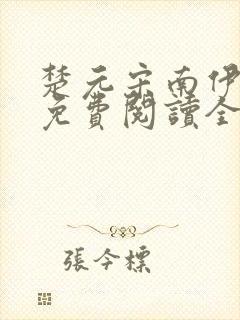 楚元宗南伊
免費閱讀全
張今標